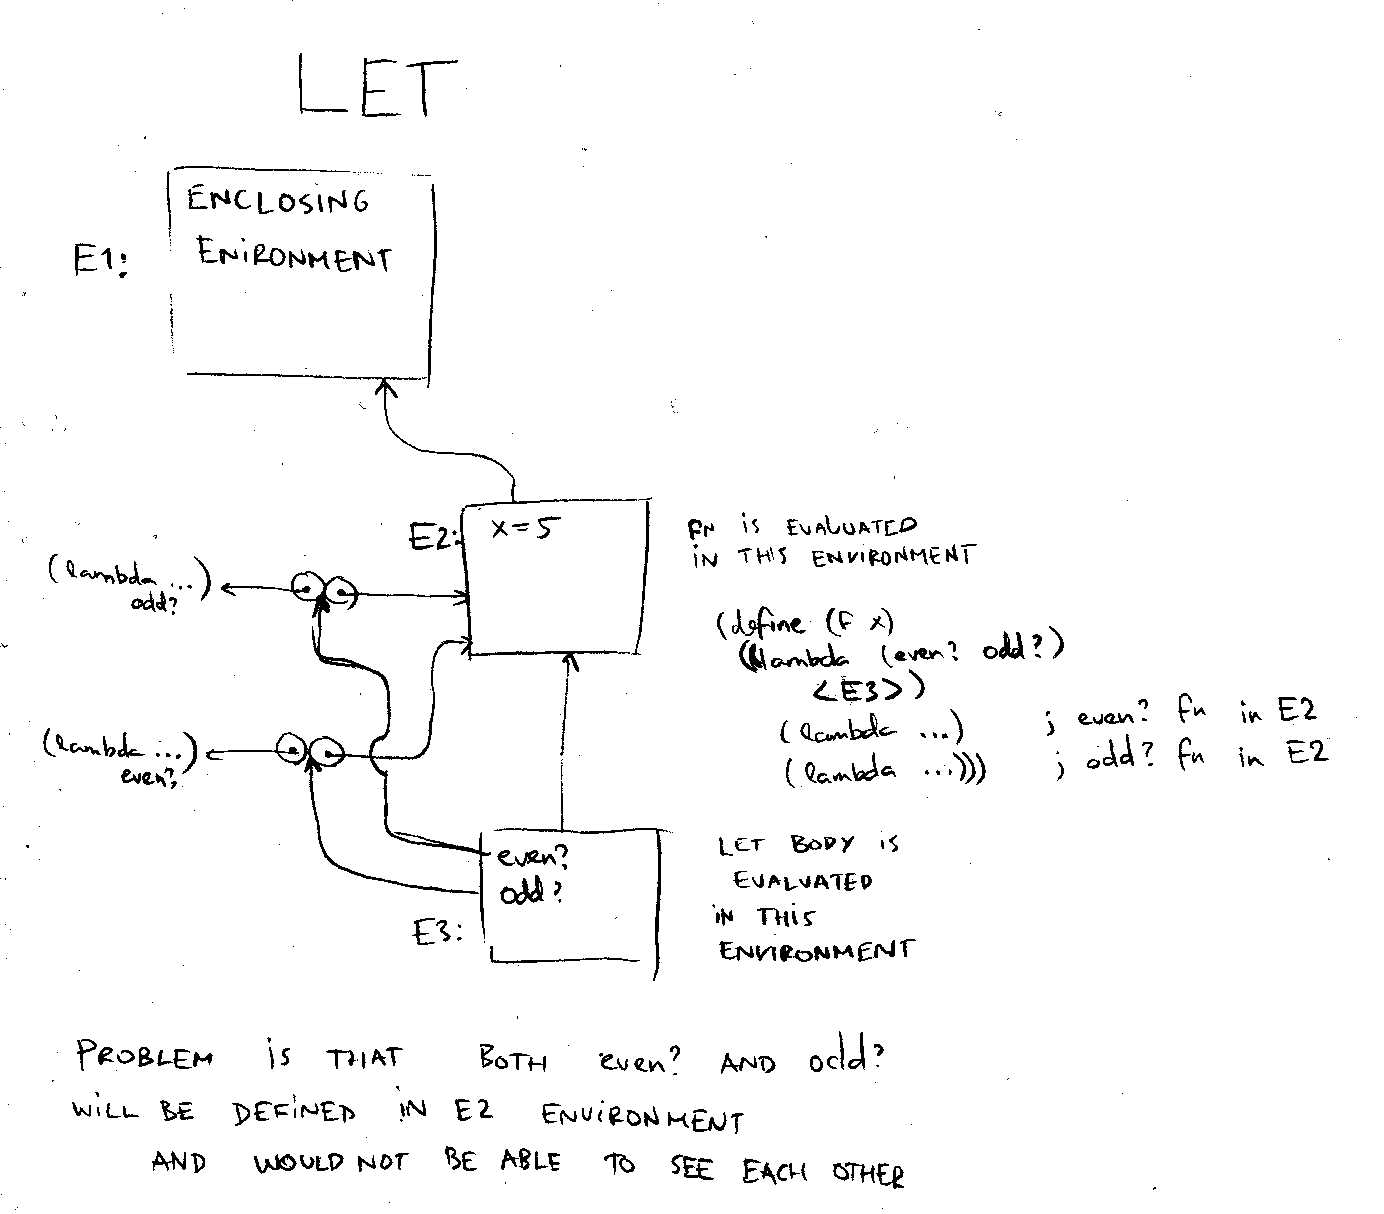 LET
ENCLOSING
ENIRONMENT
E1:
E2:
x=5
FN iS EVALUATED
iN THiS ENViRONMENT
(lambda ...)
odd?
(define (F x)
((lambda (even? odd?)
<E3>)
(lambda ...) ; even? fn in E2
(lambda ...))) ; odd? fn in E2
(lambda ...)
even?
even?
odd?
E3:
LET BODY iS
EVALUATED
iN THiS
ENVIRONMENT
PROBLEM iS THAT BOTH even? AND odd?
WiLL BE DEFiNED iN E2 ENViRONMENT
AND WOULD NOT BE ABLE TO SEE EACH OTHER